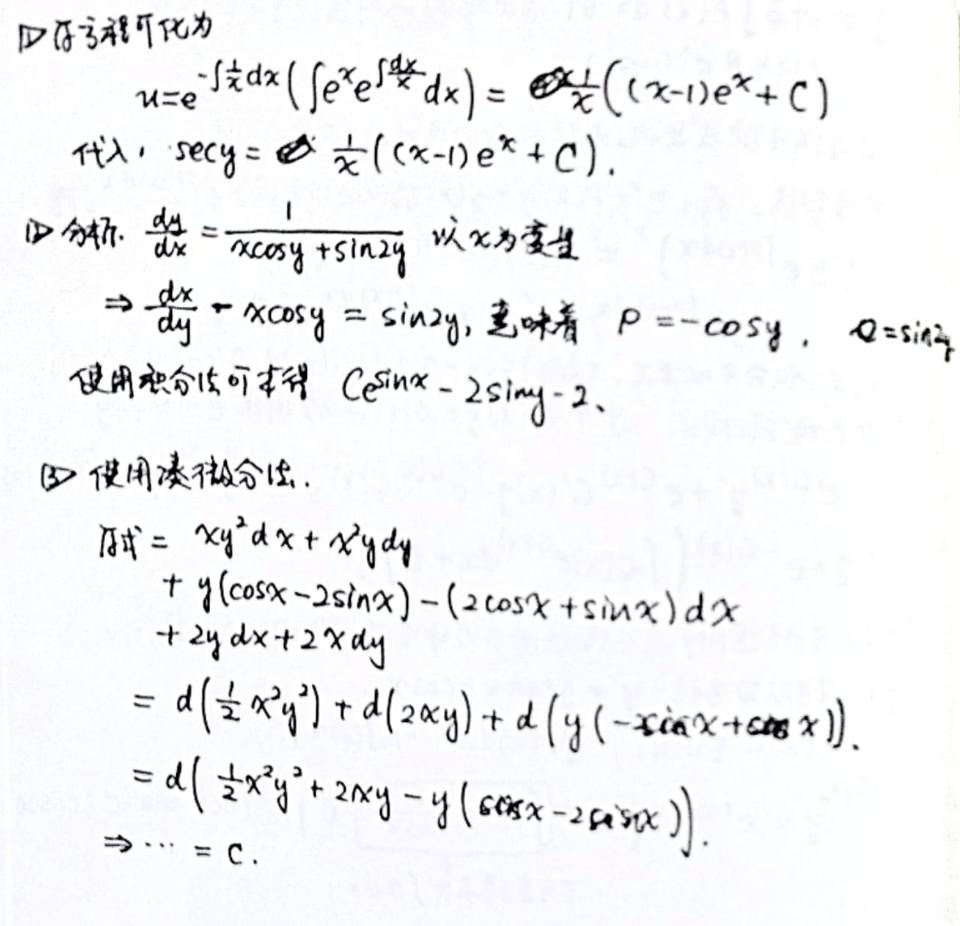 1> 原方程可化为
u=e^{-∫\frac{1}{x}dx}(∫e^x e^{∫\frac{dx}{x}}dx) = \frac{1}{x}((x-1)e^x+C)
代入, secy = \frac{1}{x}((x-1)e^x+C).
1> 分析. \frac{dy}{dx} = \frac{1}{xcosy+sin2y} 以x为变量
⇒ \frac{dx}{dy} - xcosy = sin2y, 意味着 P=-cosy, Q=sin2y
使用积分法可求得 Ce^{sinx} - 2siny - 2、
3> 使用凑微分法.
原式 = xy²dx + x²ydy
+ y(cosx-2sinx) - (2cosx+sinx)dx
+ 2ydx + 2xdy
= d(\frac{1}{2}x²y²) + d(2xy) + d(y(-sinx+cosx)).
= d(\frac{1}{2}x²y² + 2xy - y(cosx-2sinx)).
⇒ ⋯ = C.